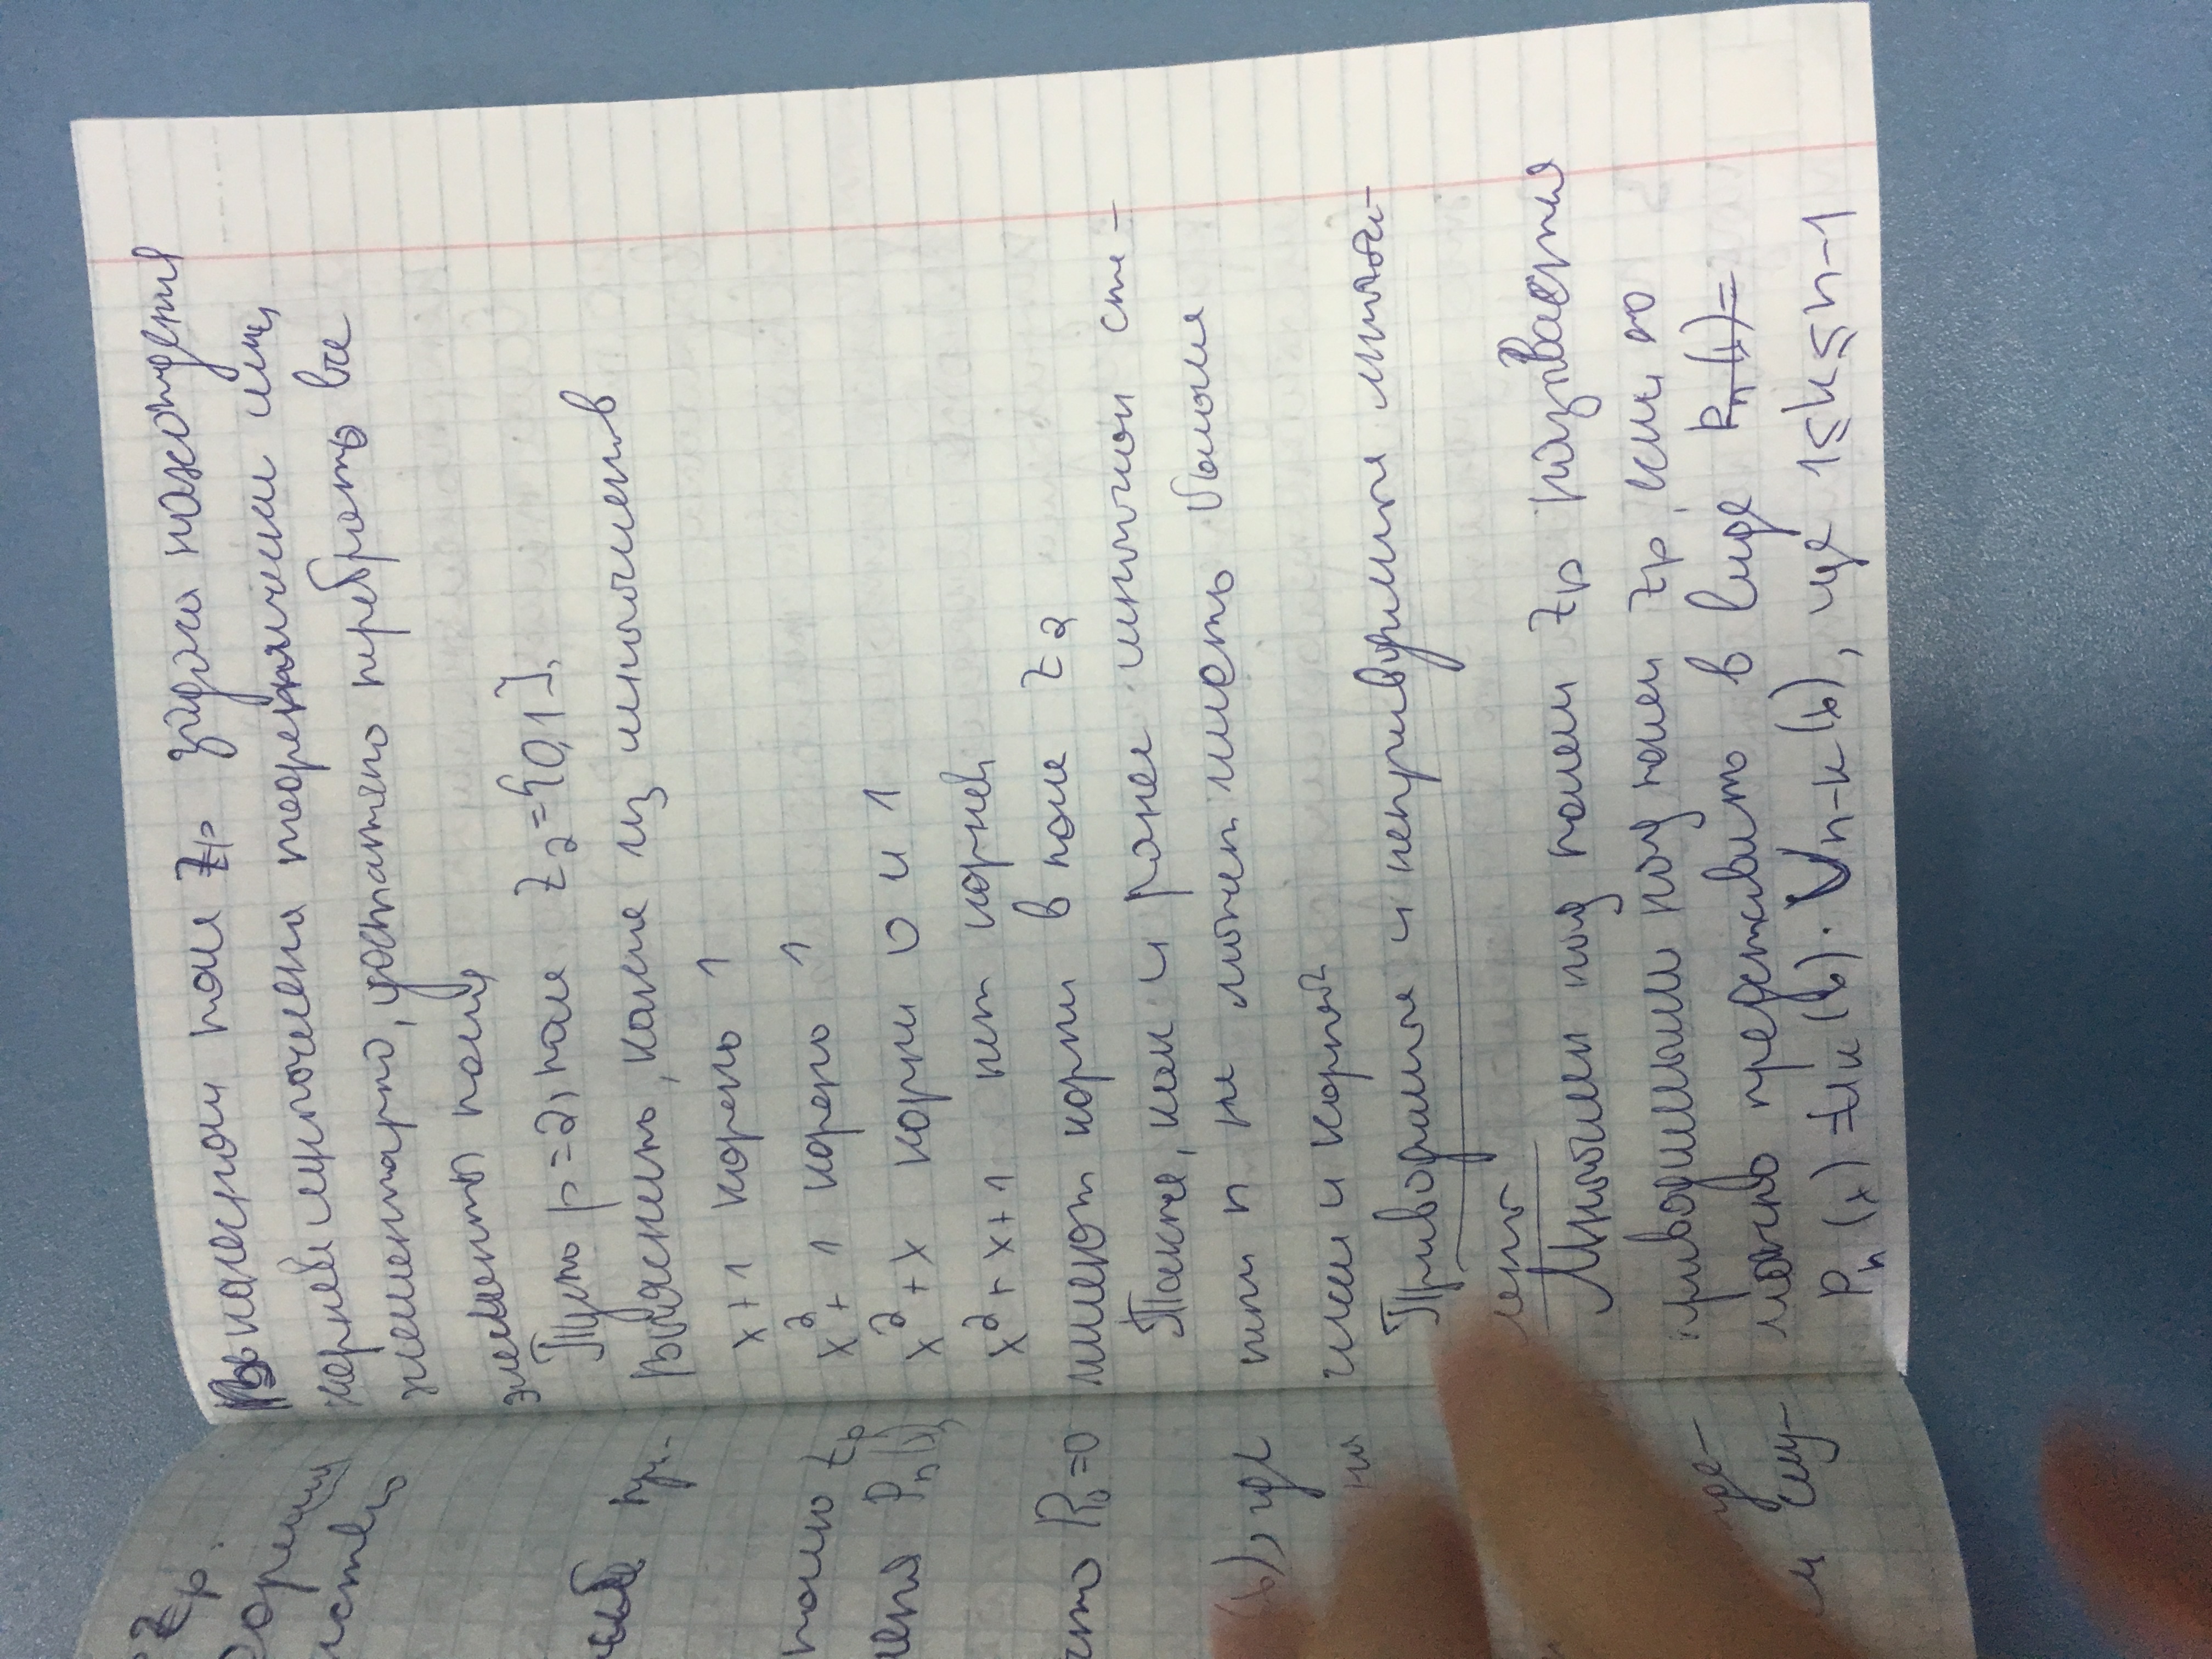 Zp.
В конечном поле Zp задача нахождения
корней многочлена теоретически
элементарно, достаточно перебрать все
элементы поля
Пусть p=2, поле Z₂={0,1}.
Выяснить, какие из многочленов
x+1 корень 1
x²+1 корень 1
x²+x корни 0 и 1
x²+x+1 нет корней
имеют корни в поле Z₂
Также, как и ранее многочлен сте-
пени n не может иметь больше
чем n корней
Приводимые и неприводимые многочи-
лены
Многочлен над полем Zp называется
приводимыми над полем Zp, если его
можно представить в виде Pn(x)=
Pn(x)=Uk(x)·Vn-k(x), где 1≤k≤n-1
полю Zp
Pn(x)
что P₀=0
где
на